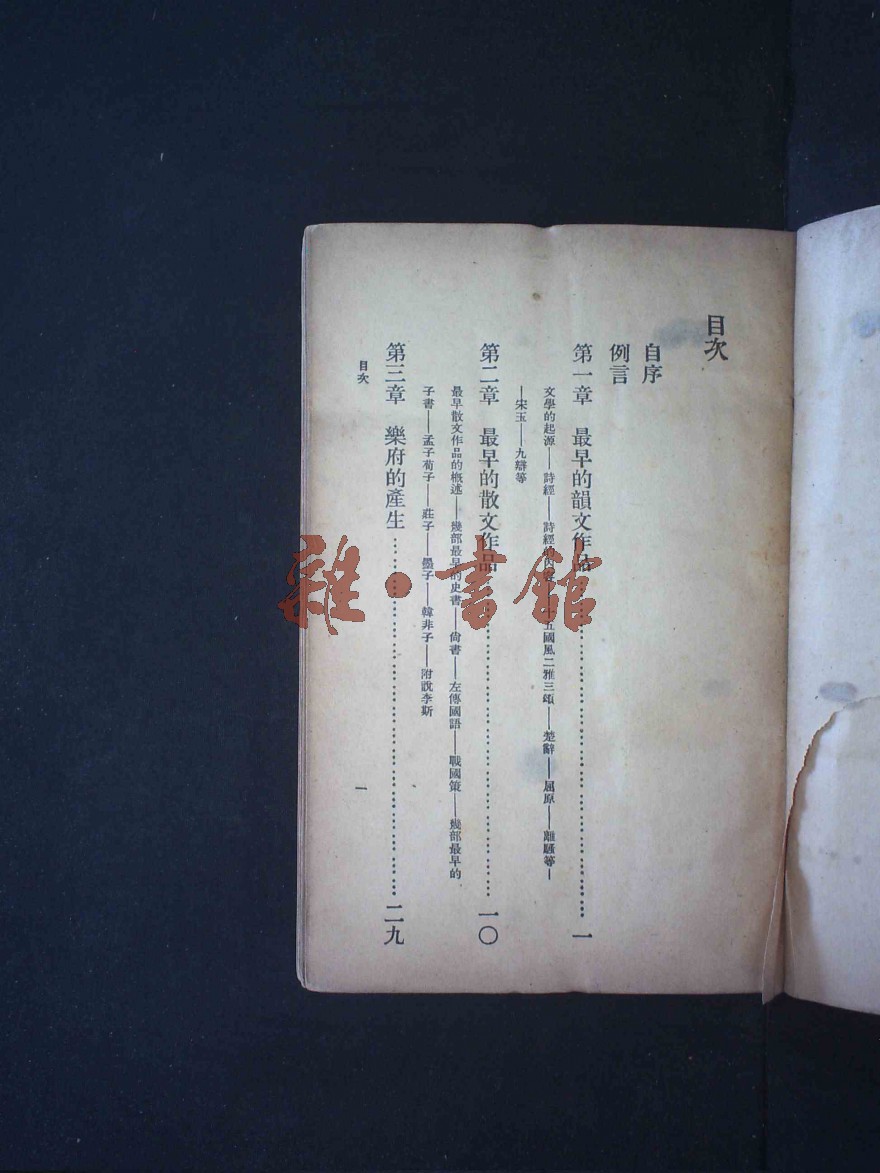 目次
自序
例言
第一章　最早的韻文作品……一
文學的起源——詩經——詩經的內容——十五國風二雅三頌——楚辭——屈原——離騷等—
—宋玉——九辯等
第二章　最早的散文作品……一〇
最早散文作品的概述——幾部最早的史書——尙書——左傳國語——戰國策——幾部最早的
子書——孟子荀子——莊子——墨子——韓非子——附說李斯
第三章　樂府的產生……二九
目次
一
雜·書館